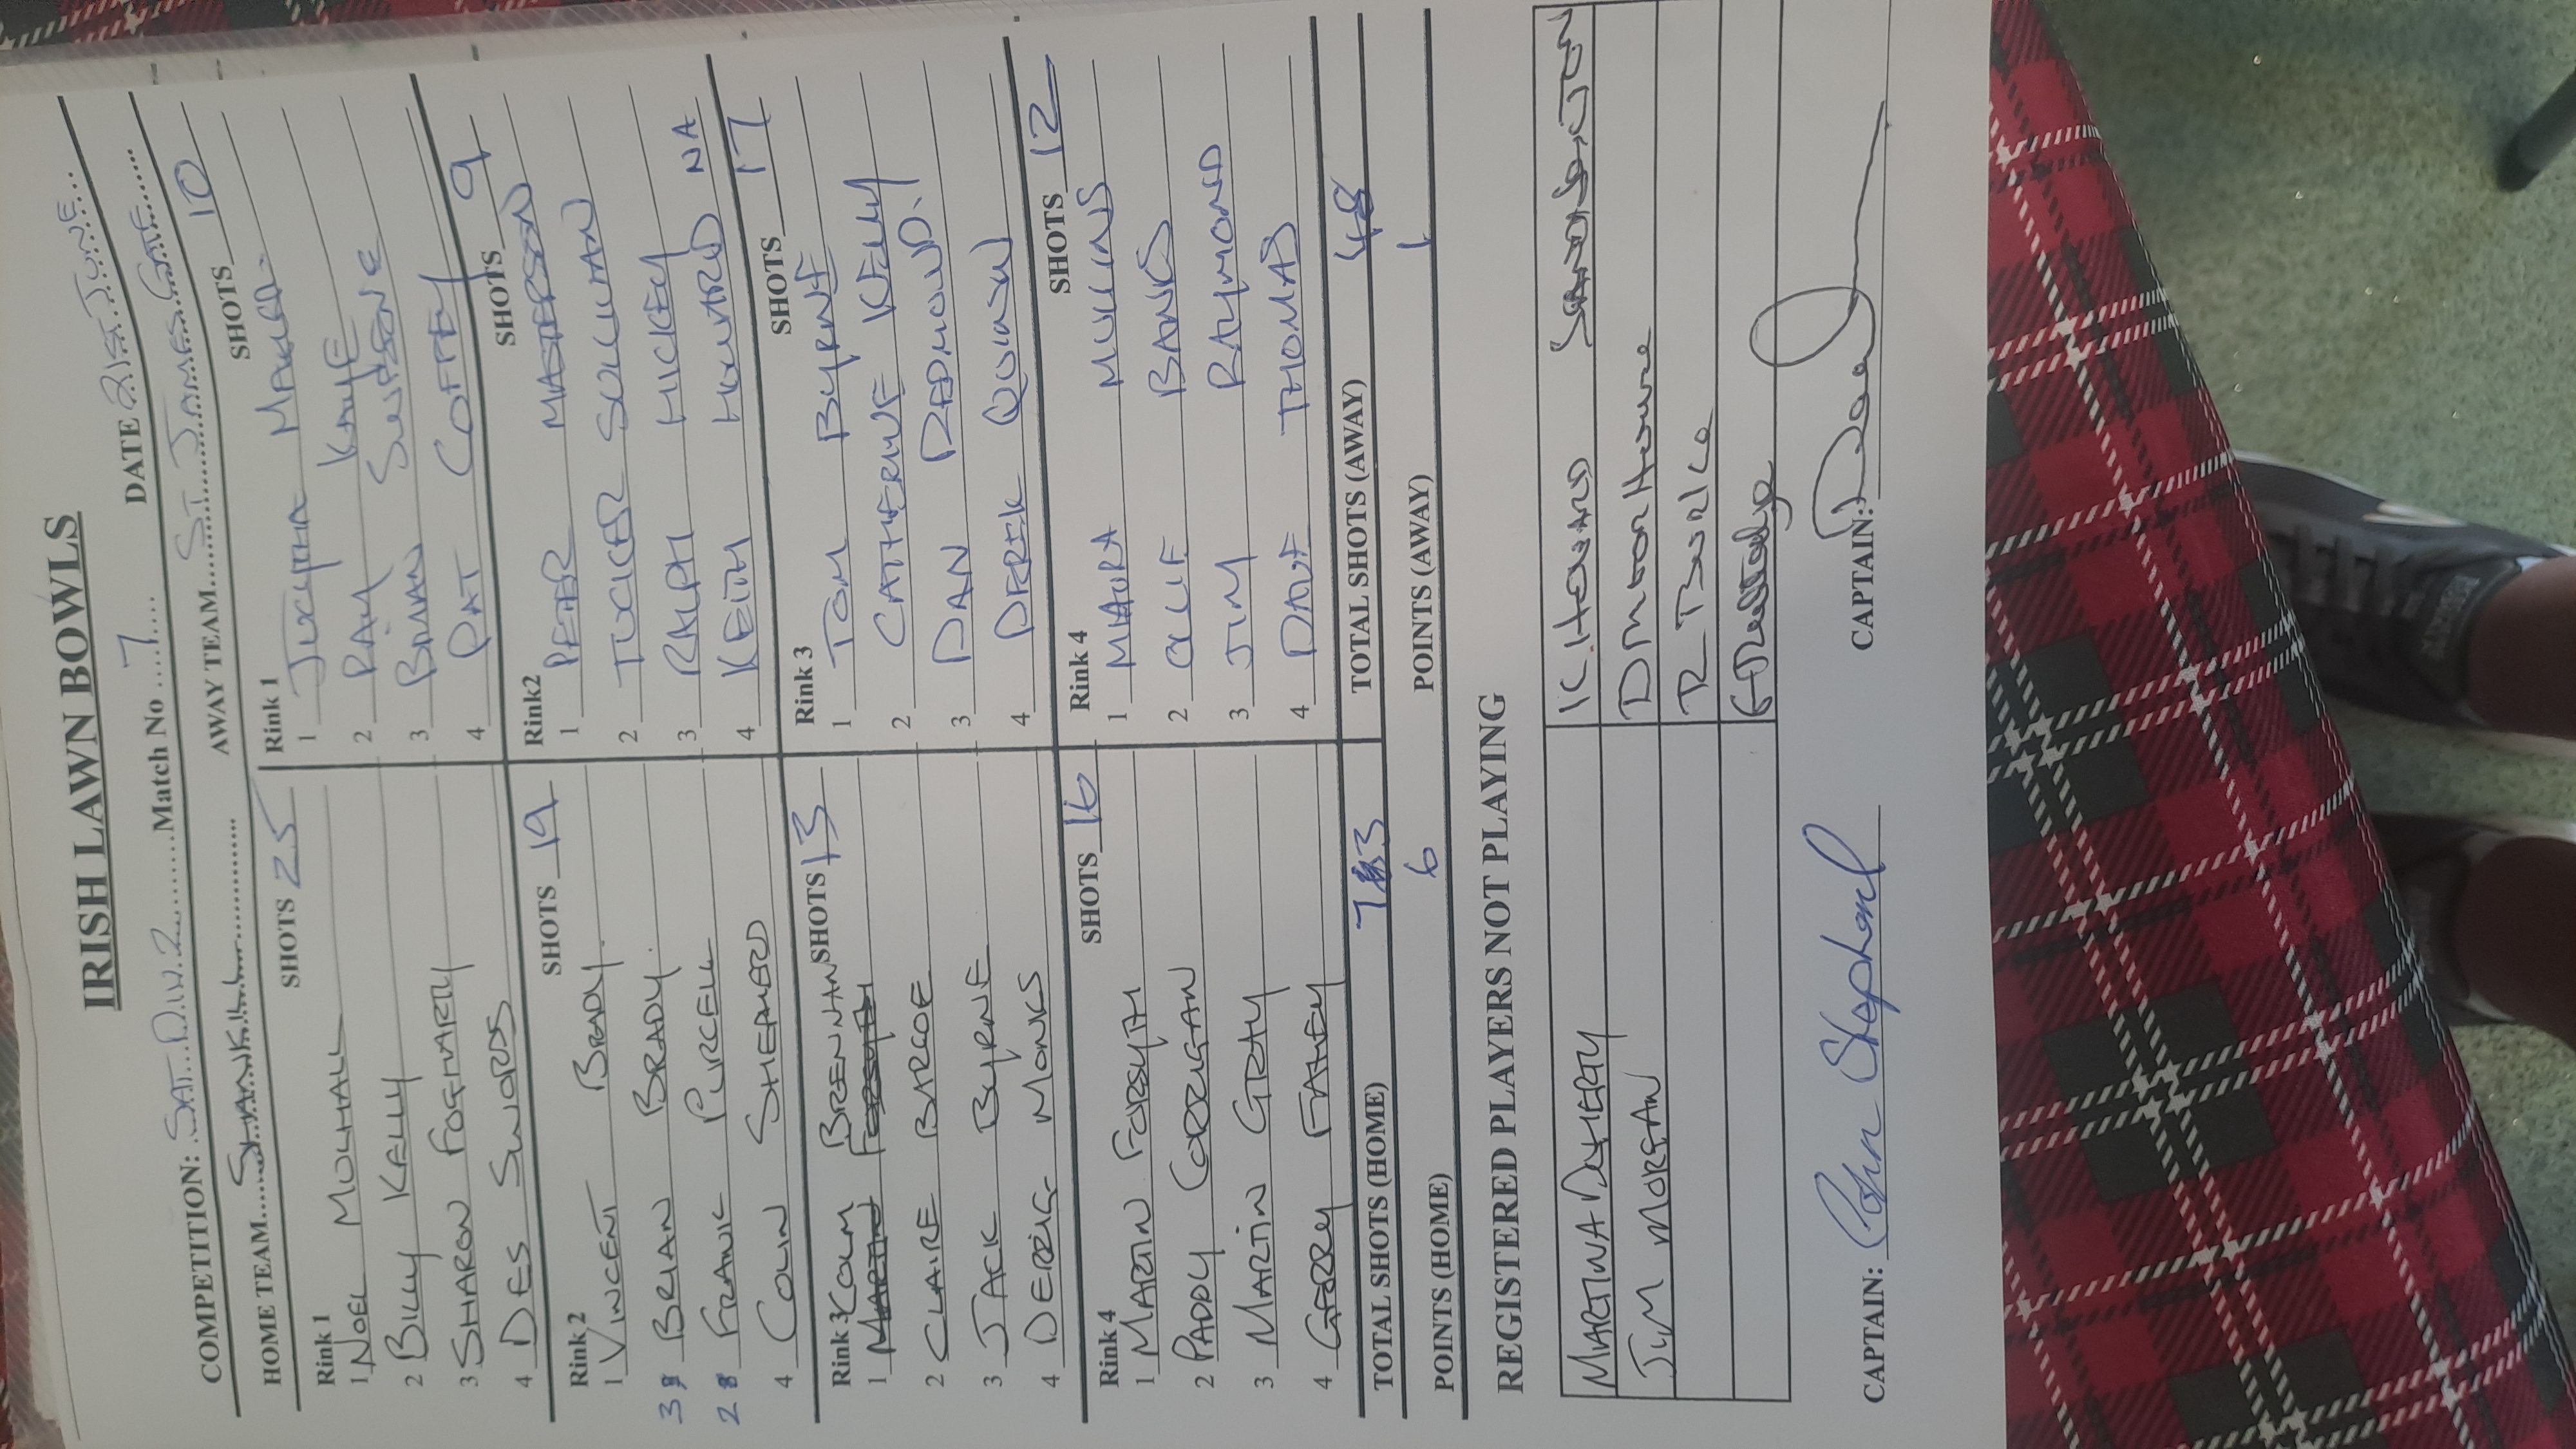 IRISH LAWN BOWLS
COMPETITION: SAT. DIV. 2 Match No 7 DATE 21ST JUNE
HOME TEAM SHANKILL AWAY TEAM ST JAMES GATE
Rink 1 SHOTS 25 Rink 1 SHOTS 10
1 NOEL MULHALL 1 JUCYTHA
2 BILLY KELLY 2 RAY KAVYE
3 SHARON FOGHARTY 3 BRIAN SWEENE
4 DES SWORDS 4 PAT COFFEY
Rink 2 SHOTS 19 Rink2 SHOTS 9
1 VINCENT BRADY. 1 PETER MASTERSON
3 BRIAN BRADY. 2 TUCKER SULLIVAN
2 FRANK PURCELL 3 RALPH HICKEY
4 COLIN SHEPHERD 4 KEITH HOWARD NA
Rink 3 COLM BRENNAN SHOTS 13 Rink 3 SHOTS 17
1 MARTIN FORSYTH 1 TOM BYRNE
2 CLAIRE BARCOE 2 CATHERINE KELLY
3 JACK BYRNE 3 DAN REDMOND.
4 DEREG MONKS 4 DEREK QUINN
Rink 4 SHOTS 16 Rink 4 SHOTS 12
1 MARTIN FORSYTH 1 MAURA MULLINS
2 PADDY CORRIGAN 2 OLLIE BANKS
3 MARTIN GRAY 3 JIM RAYMOND
4 GERRY FAHEY 4 DAVE THOMAS
TOTAL SHOTS (HOME) 73 TOTAL SHOTS (AWAY) 48
POINTS (HOME) 6 POINTS (AWAY) 1
REGISTERED PLAYERS NOT PLAYING
MARTINA DOHERTY K. HOWARD
JIM MORGAN D Moorhouse
R Burke
CAPTAIN: John Shepherd CAPTAIN: